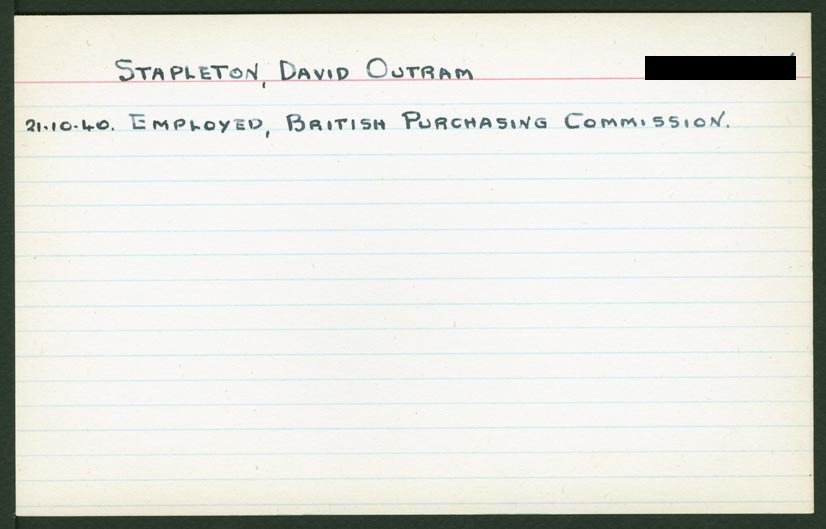 STAPLETON, DAVID OUTRAM
21.10.40. EMPLOYED, BRITISH PURCHASING COMMISSION.